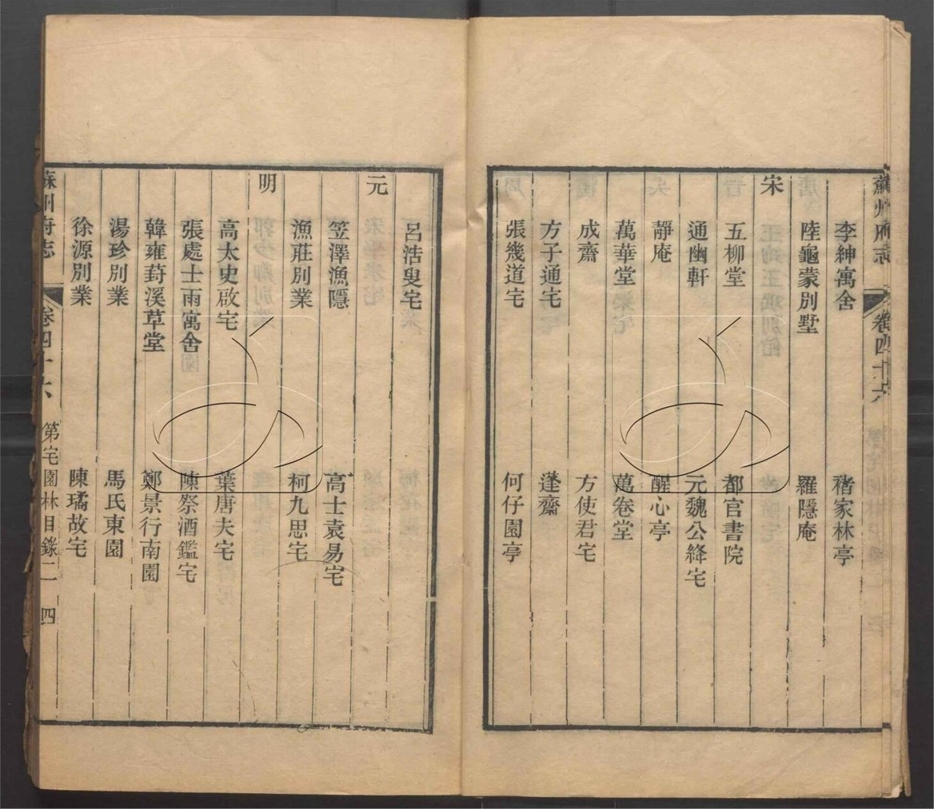 蘇州府志 卷四十六
李紳寓舍 褚家林亭
陸龜蒙別墅 羅隱庵
宋
五柳堂 都官書院
通幽軒 元魏公絳宅
靜庵 醒心亭
萬華堂 萬卷堂
成齋 方使君宅
方子通宅 蓬齋
張幾道宅 何仔園亭
呂浩叟宅
元
笠澤漁隱 高士袁易宅
漁莊別業 柯九思宅
明
高太史啟宅 葉唐夫宅
張處士雨寓舍 陳祭酒鑑宅
韓雍葑溪草堂 鄭景行南園
湯珍別業 馬氏東園
徐源別業 陳璚故宅
蘇州府志 卷四十六 第宅園林目錄二 四